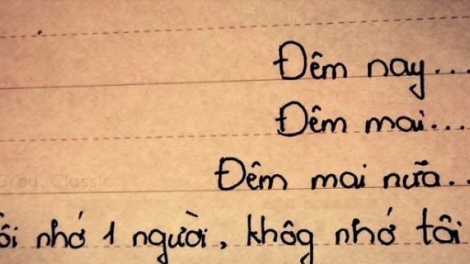 Đêm nay...
Đêm mai...
Đêm mai nữa..
ôi nhớ 1 người, khôg nhớ tôi